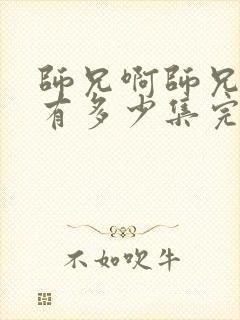 師兄啊師兄
有多少集完
不如吹牛